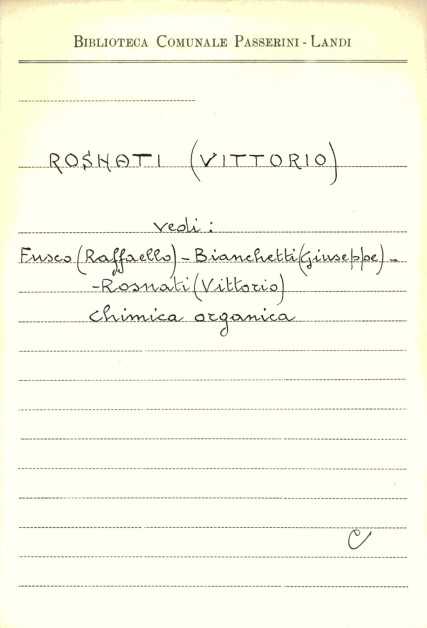 BIBLIOTECA COMUNALE PASSERINI - LANDI
ROSNATI (VITTORIO)
vedi:
Fusco (Raffaello) - Bianchetti (Giuseppe) -
- Rosnati (Vittorio)
Chimica organica
C